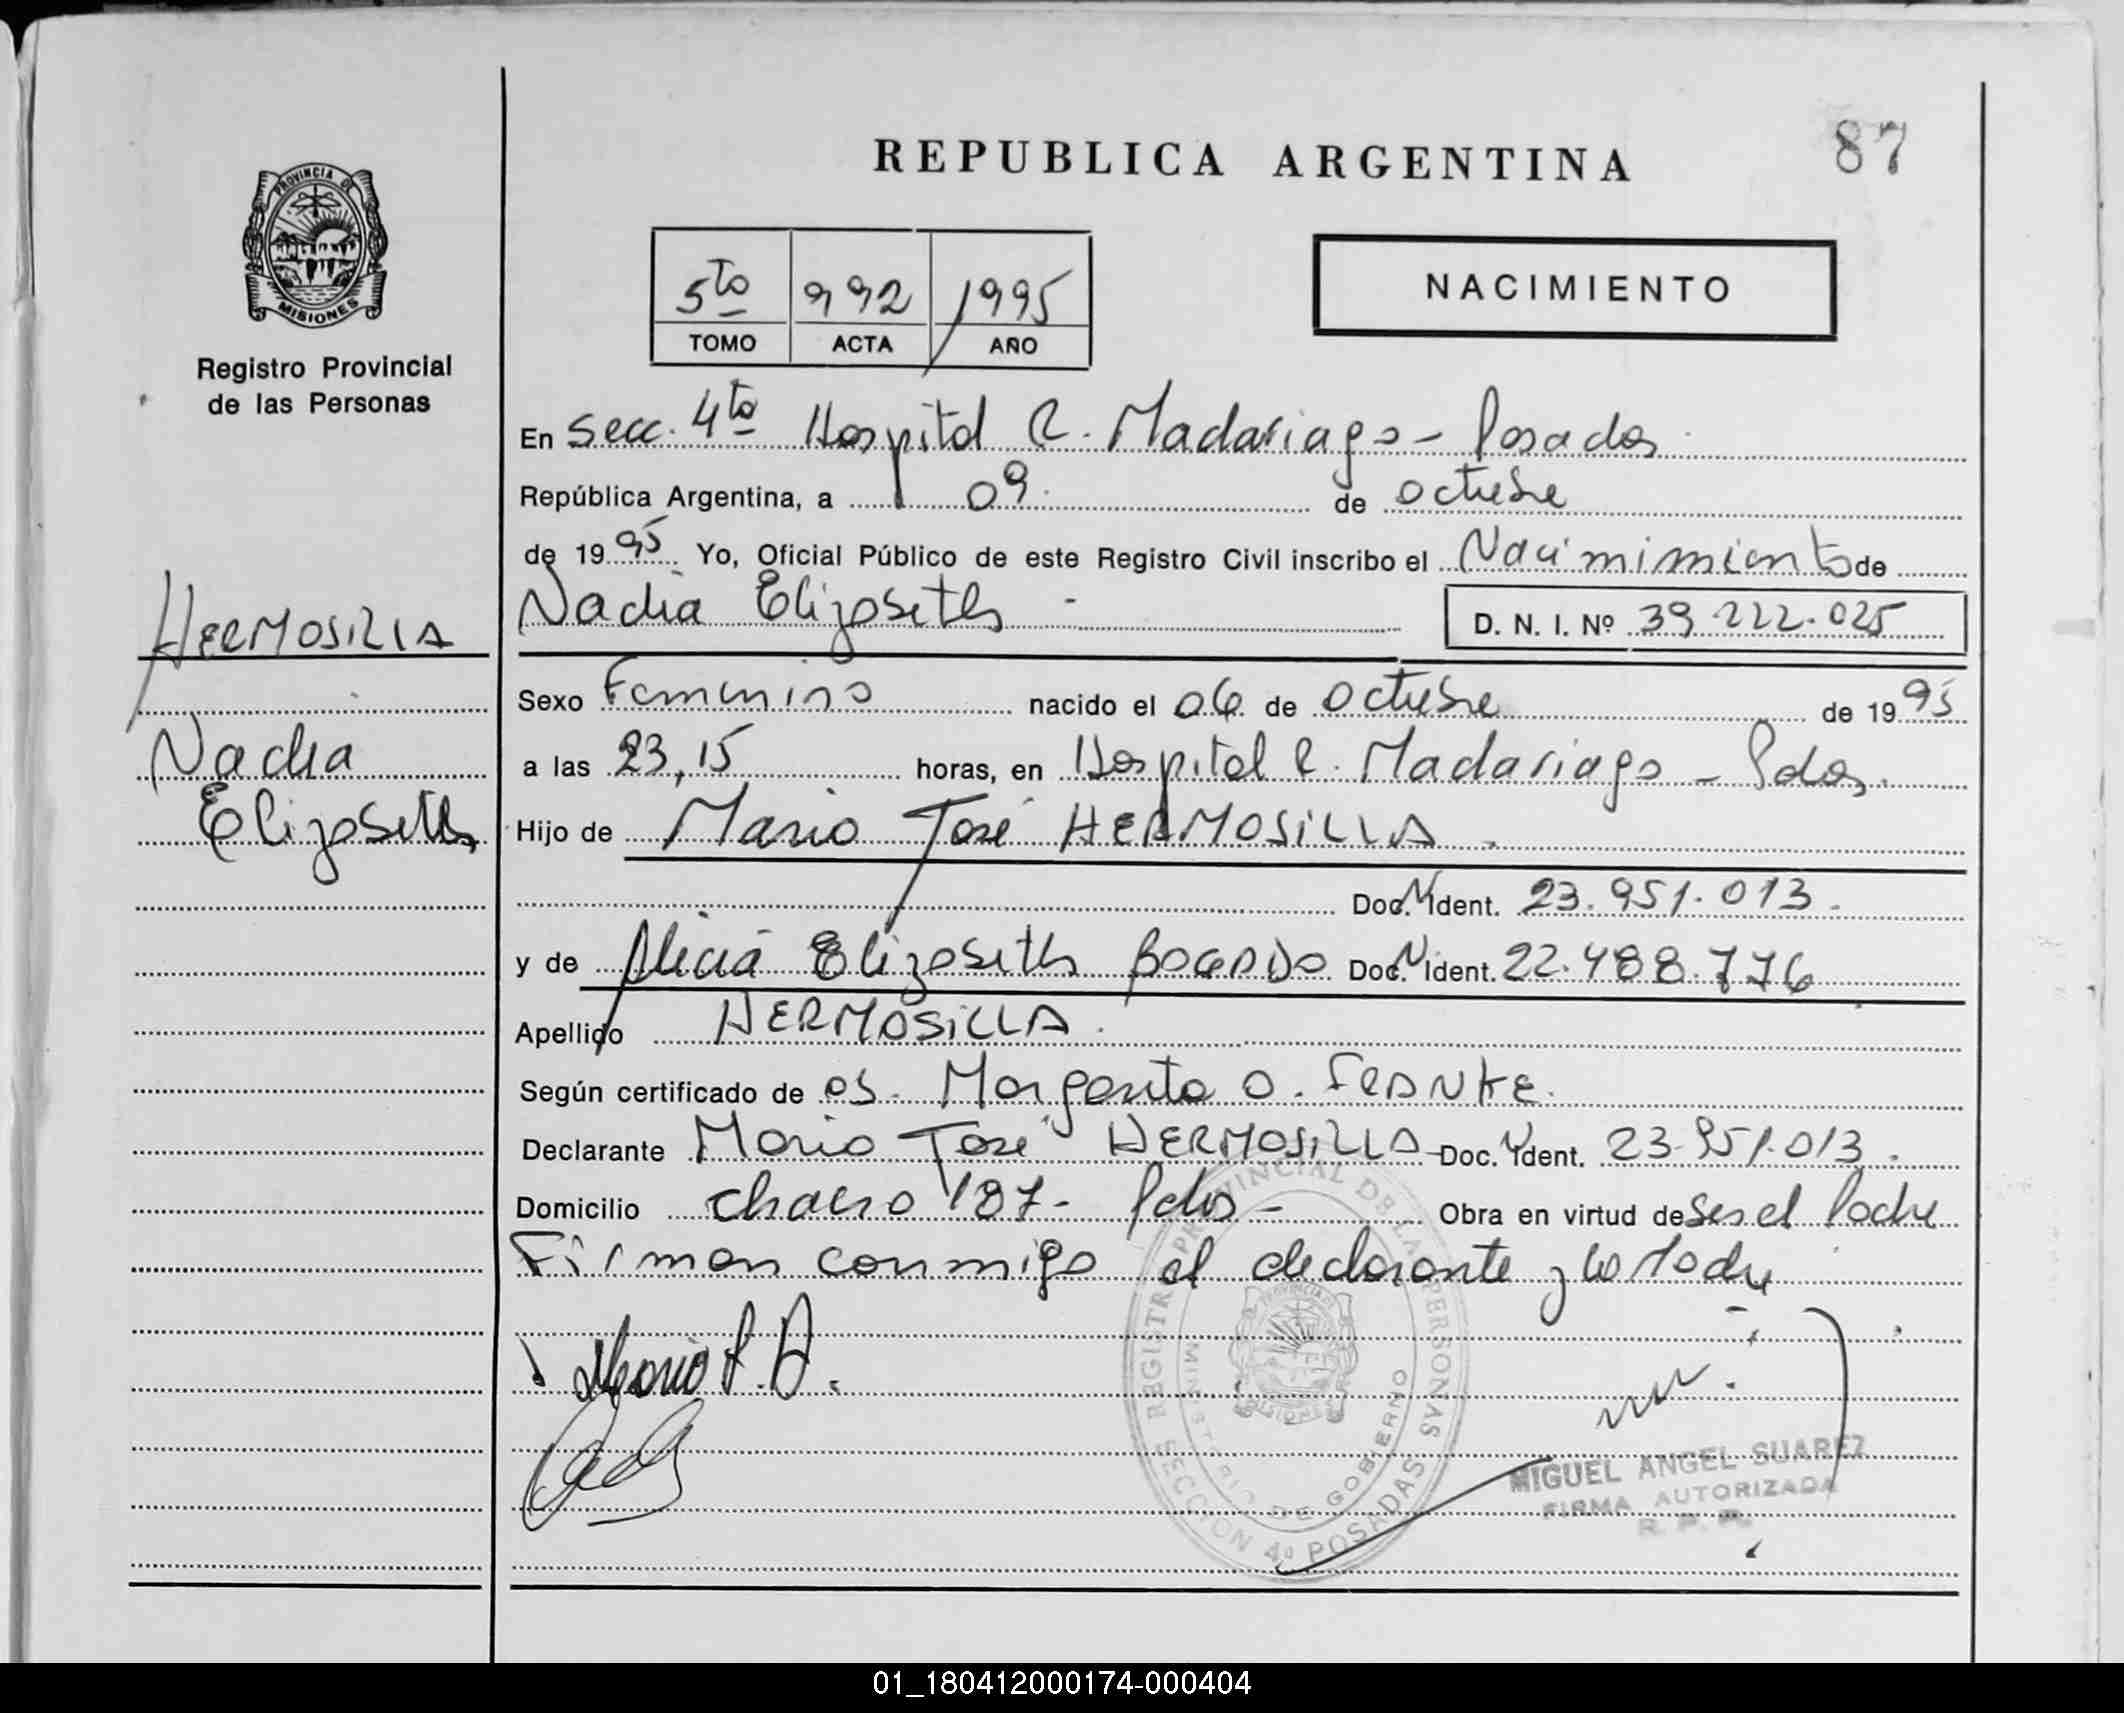 REPUBLICA ARGENTINA
87
PROVINCIA DE
MISIONES
Registro Provincial
de las Personas
5to 992 1995
TOMO ACTA AÑO
NACIMIENTO
En secc. 4ta Hospital R. Madariaga - Posadas
República Argentina, a 09 de octubre
de 1995 Yo, Oficial Público de este Registro Civil inscribo el Nacimimiento de
Nadia Elizabeth -
D. N. I. Nº 39.222.025
HERMOSILLA
Nadia
Elizabeth
Sexo Femenino nacido el 06 de Octubre de 1995
a las 23,15 horas, en Hospital R. Madariaga - Pdas.
Hijo de Mario José HERMOSILLA
Doc. N Ident. 23.951.013.
y de Alicia Elizabeth BOGADO Doc. N Ident. 22.488.776
Apellido HERMOSILLA.
Según certificado de os. Margarita O. FRANKE.
Declarante Mario José HERMOSILLA Doc. N Ident. 23.951.013.
Domicilio chacra 187 - Pdas - Obra en virtud de ser el Padre
Firman conmigo el declarante y la Madre
Mario J. H.
REGISTRO PROVINCIAL DE LAS PERSONAS
MINISTERIO DE GOBIERNO
SECCION 4º POSADAS
MIGUEL ANGEL SUAREZ
FIRMA AUTORIZADA
R. P. P.
01_180412000174-000404